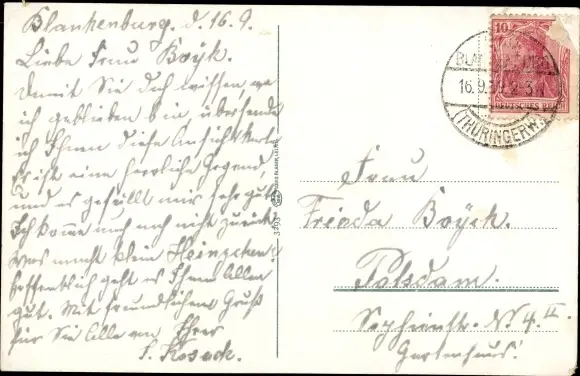 Blankenburg. d. 16. 9.
Liebe Frau Boÿk.
Damit Sie doch wissen wo
ich geblieben bin, übersende
ich Ihnen diese Ansichtskarte
Es ist eine herrliche Gegend,
und es gefällt mir sehr gut
Ich komme auch noch nicht zurück.
Was macht klein Heinzchen?
Hoffentlich geht es Ihnen allen
gut. Mit freundlichem Gruß
für Sie Alle von Ihrer
F. Kosack.
10
DEUTSCHES REICH
16.9. 2-3
(THÜRINGERW.)
3293
Frau
Frieda Boÿk.
Potsdam.
Sophienstr. No 4. II
Gartenhaus!